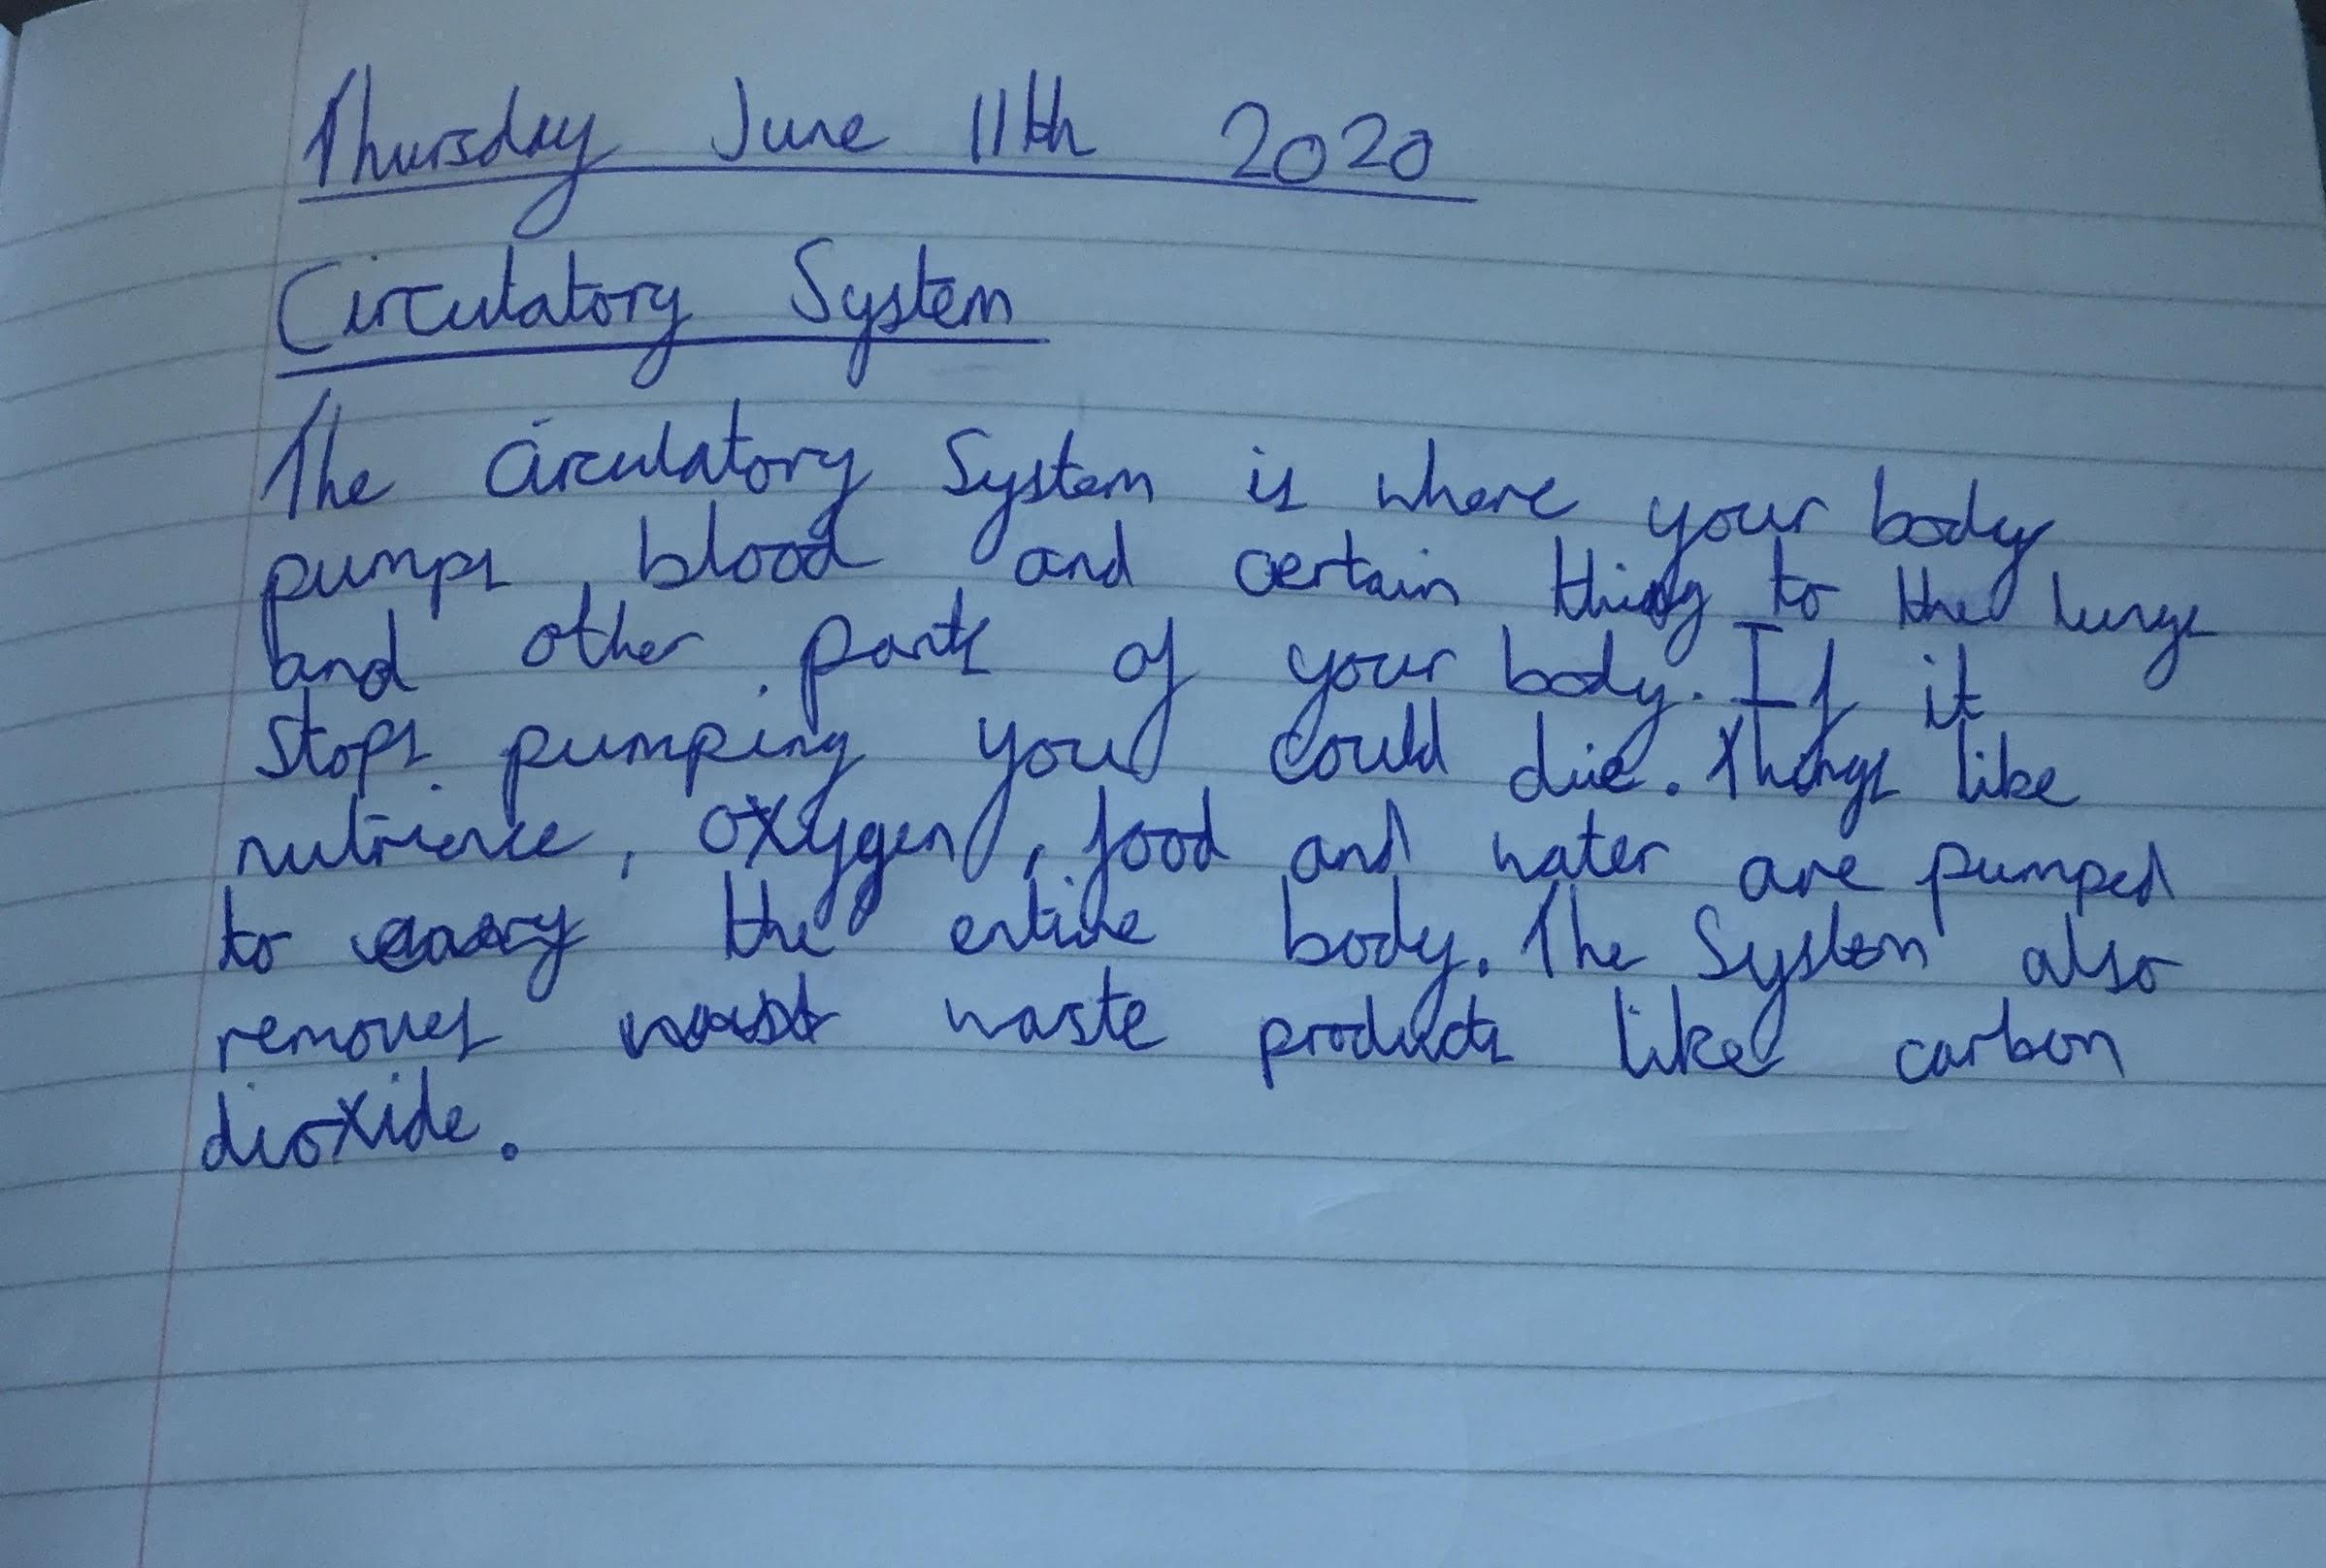 Thursday June 11th 2020
Circulatory System
The circulatory System is where your body
pumps blood and certain thing to the lungs
and other parts of your body. If it
stops pumping you could die. Things like
nutrience, oxygen, food and water are pumped
to the entire body. The System also
removes waste products like carbon
dioxide.